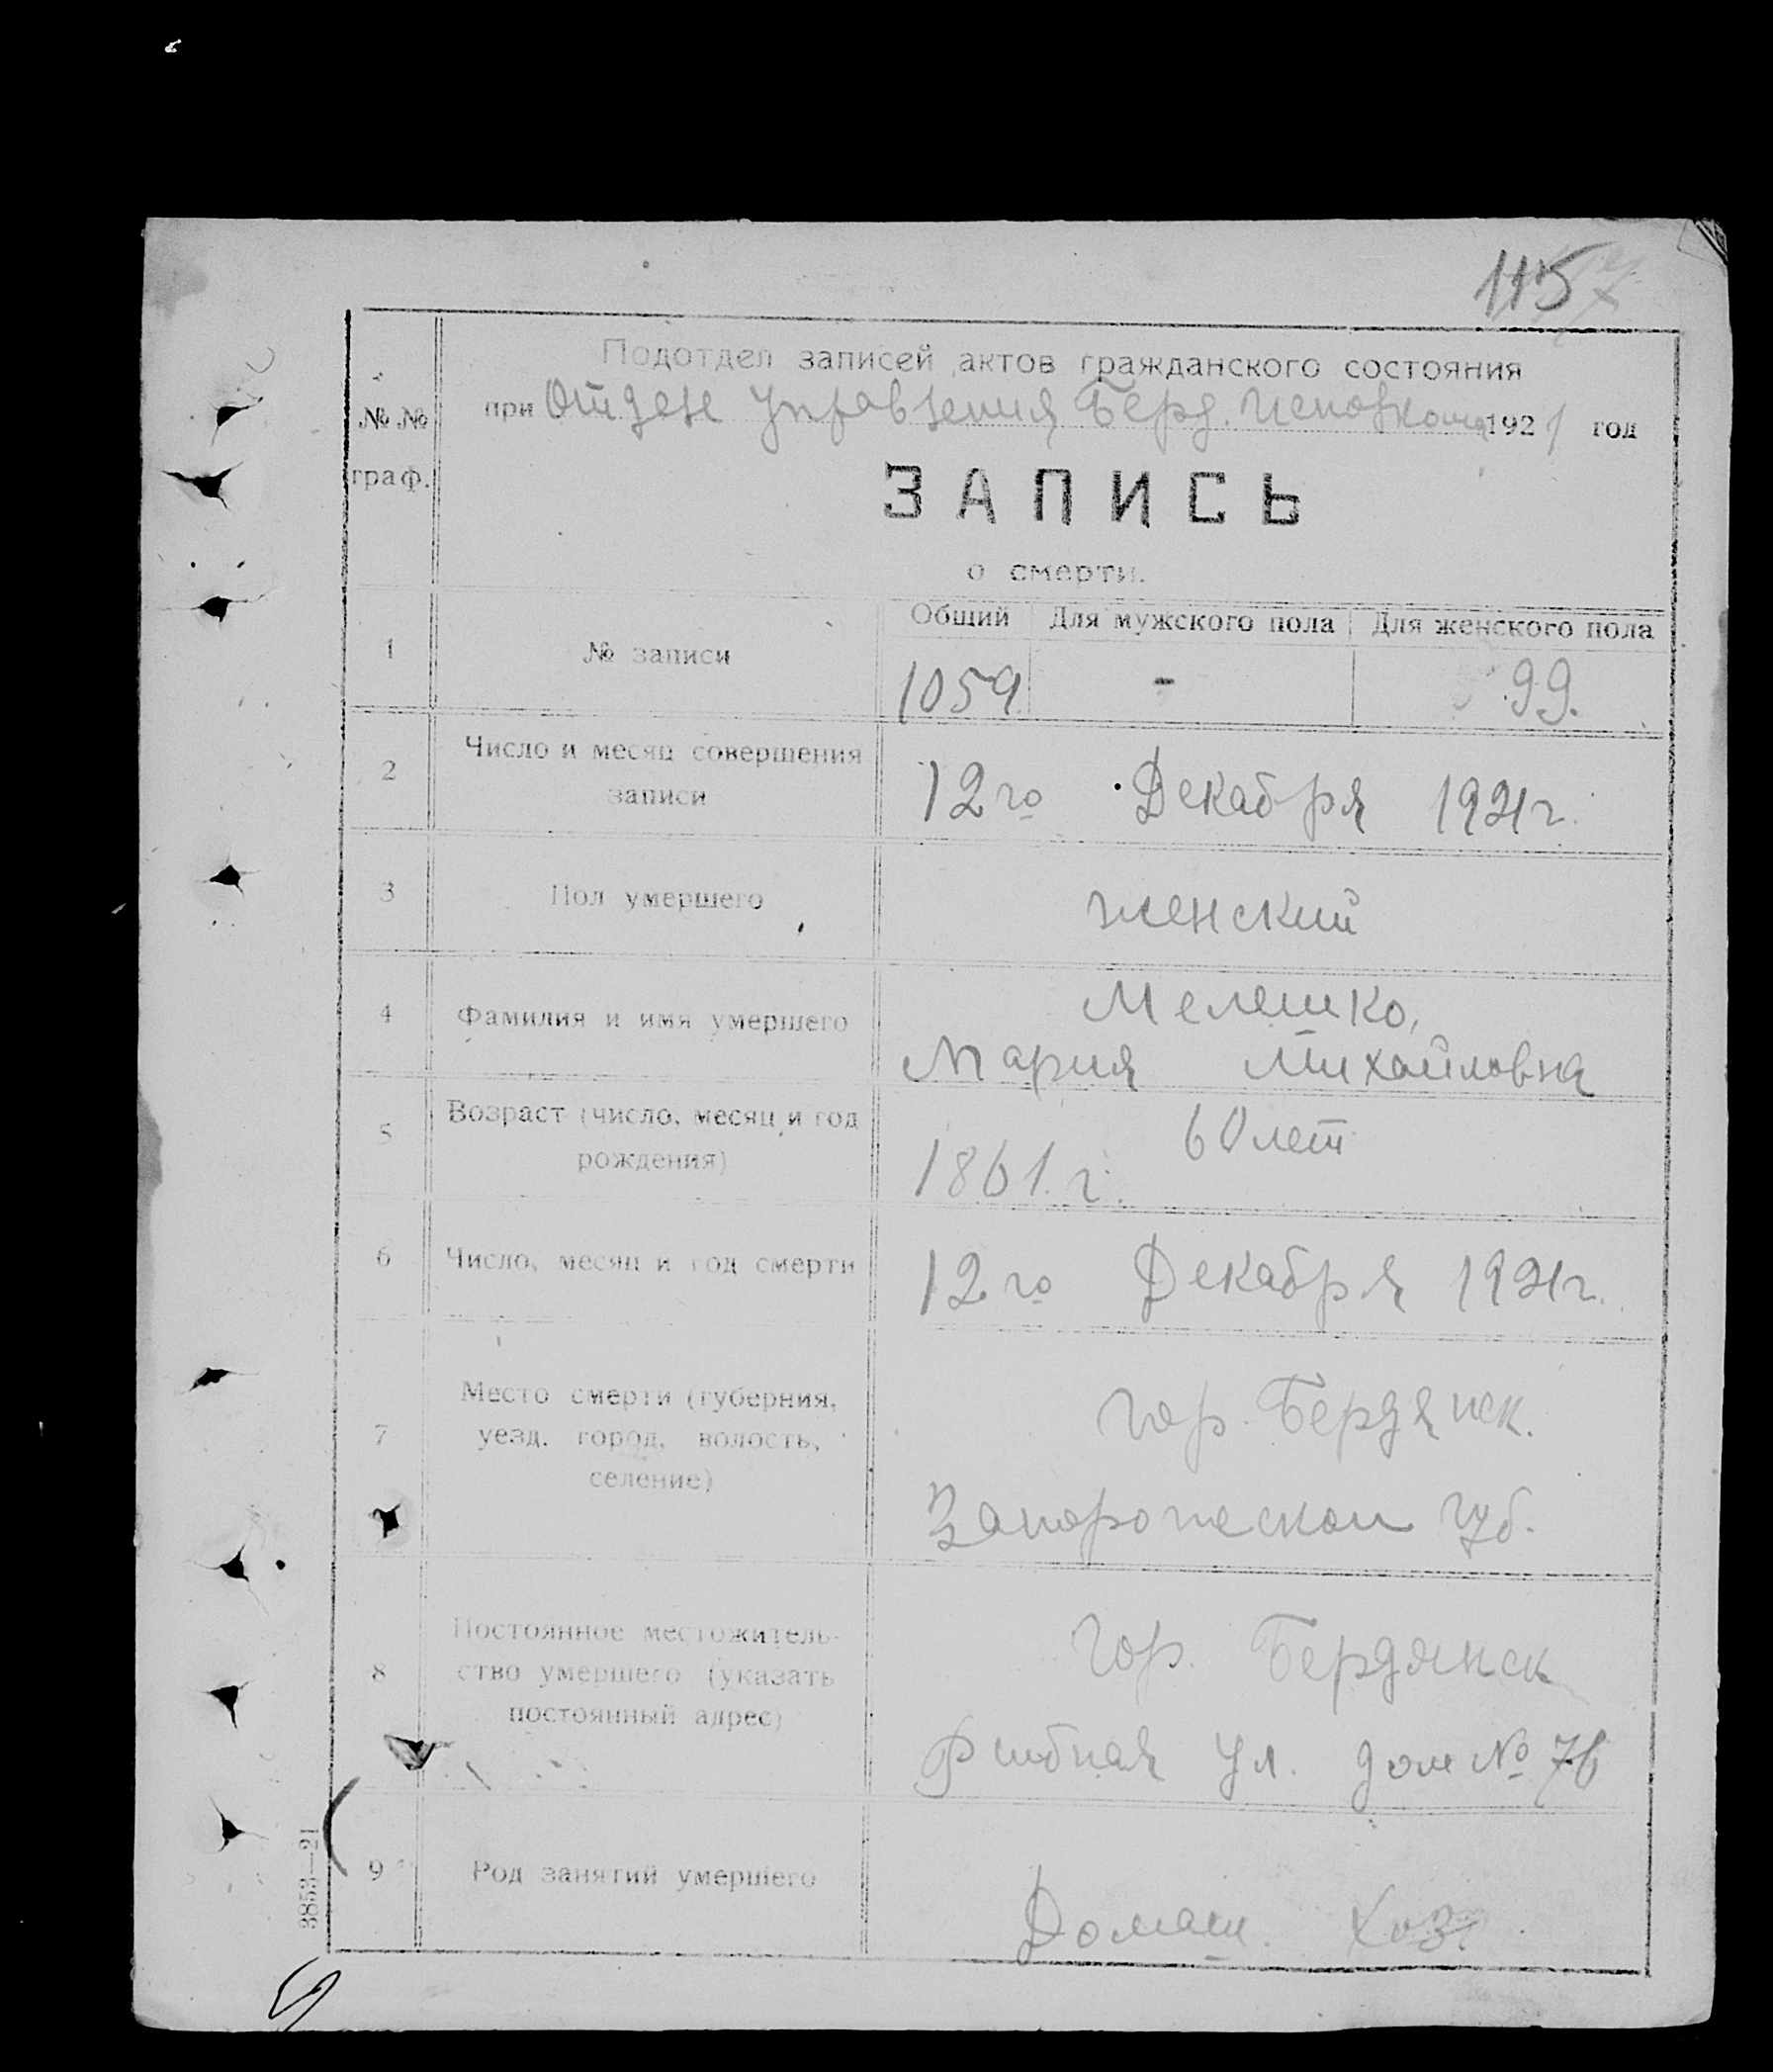 115
Подотдел записей актов гражданского состояния
№ № при Отделе Управления Берд. Исполкома 1921 год
граф.
ЗАПИСЬ
о смерти.
Общий Для мужского пола Для женского пола
1 № записи 1059 - 99.
2 Число и месяц совершения
записи 12го Декабря 1921г.
3 Пол умершего женский
4 Фамилия и имя умершего Мелешко,
Мария Михайловна
5 Возраст (число, месяц и год
рождения) 1861 г. 60 лет
6 Число, месяц и год смерти 12го Декабря 1921г.
7 Место смерти (губерния,
уезд, город, волость,
селение)
гор. Бердянск.
Запорожской губ.
8 Постоянное местожитель-
ство умершего (указать
постоянный адрес)
гор. Бердянск
ул. дом № 76
9 Род занятий умершего Домаш. хоз.
3853—21